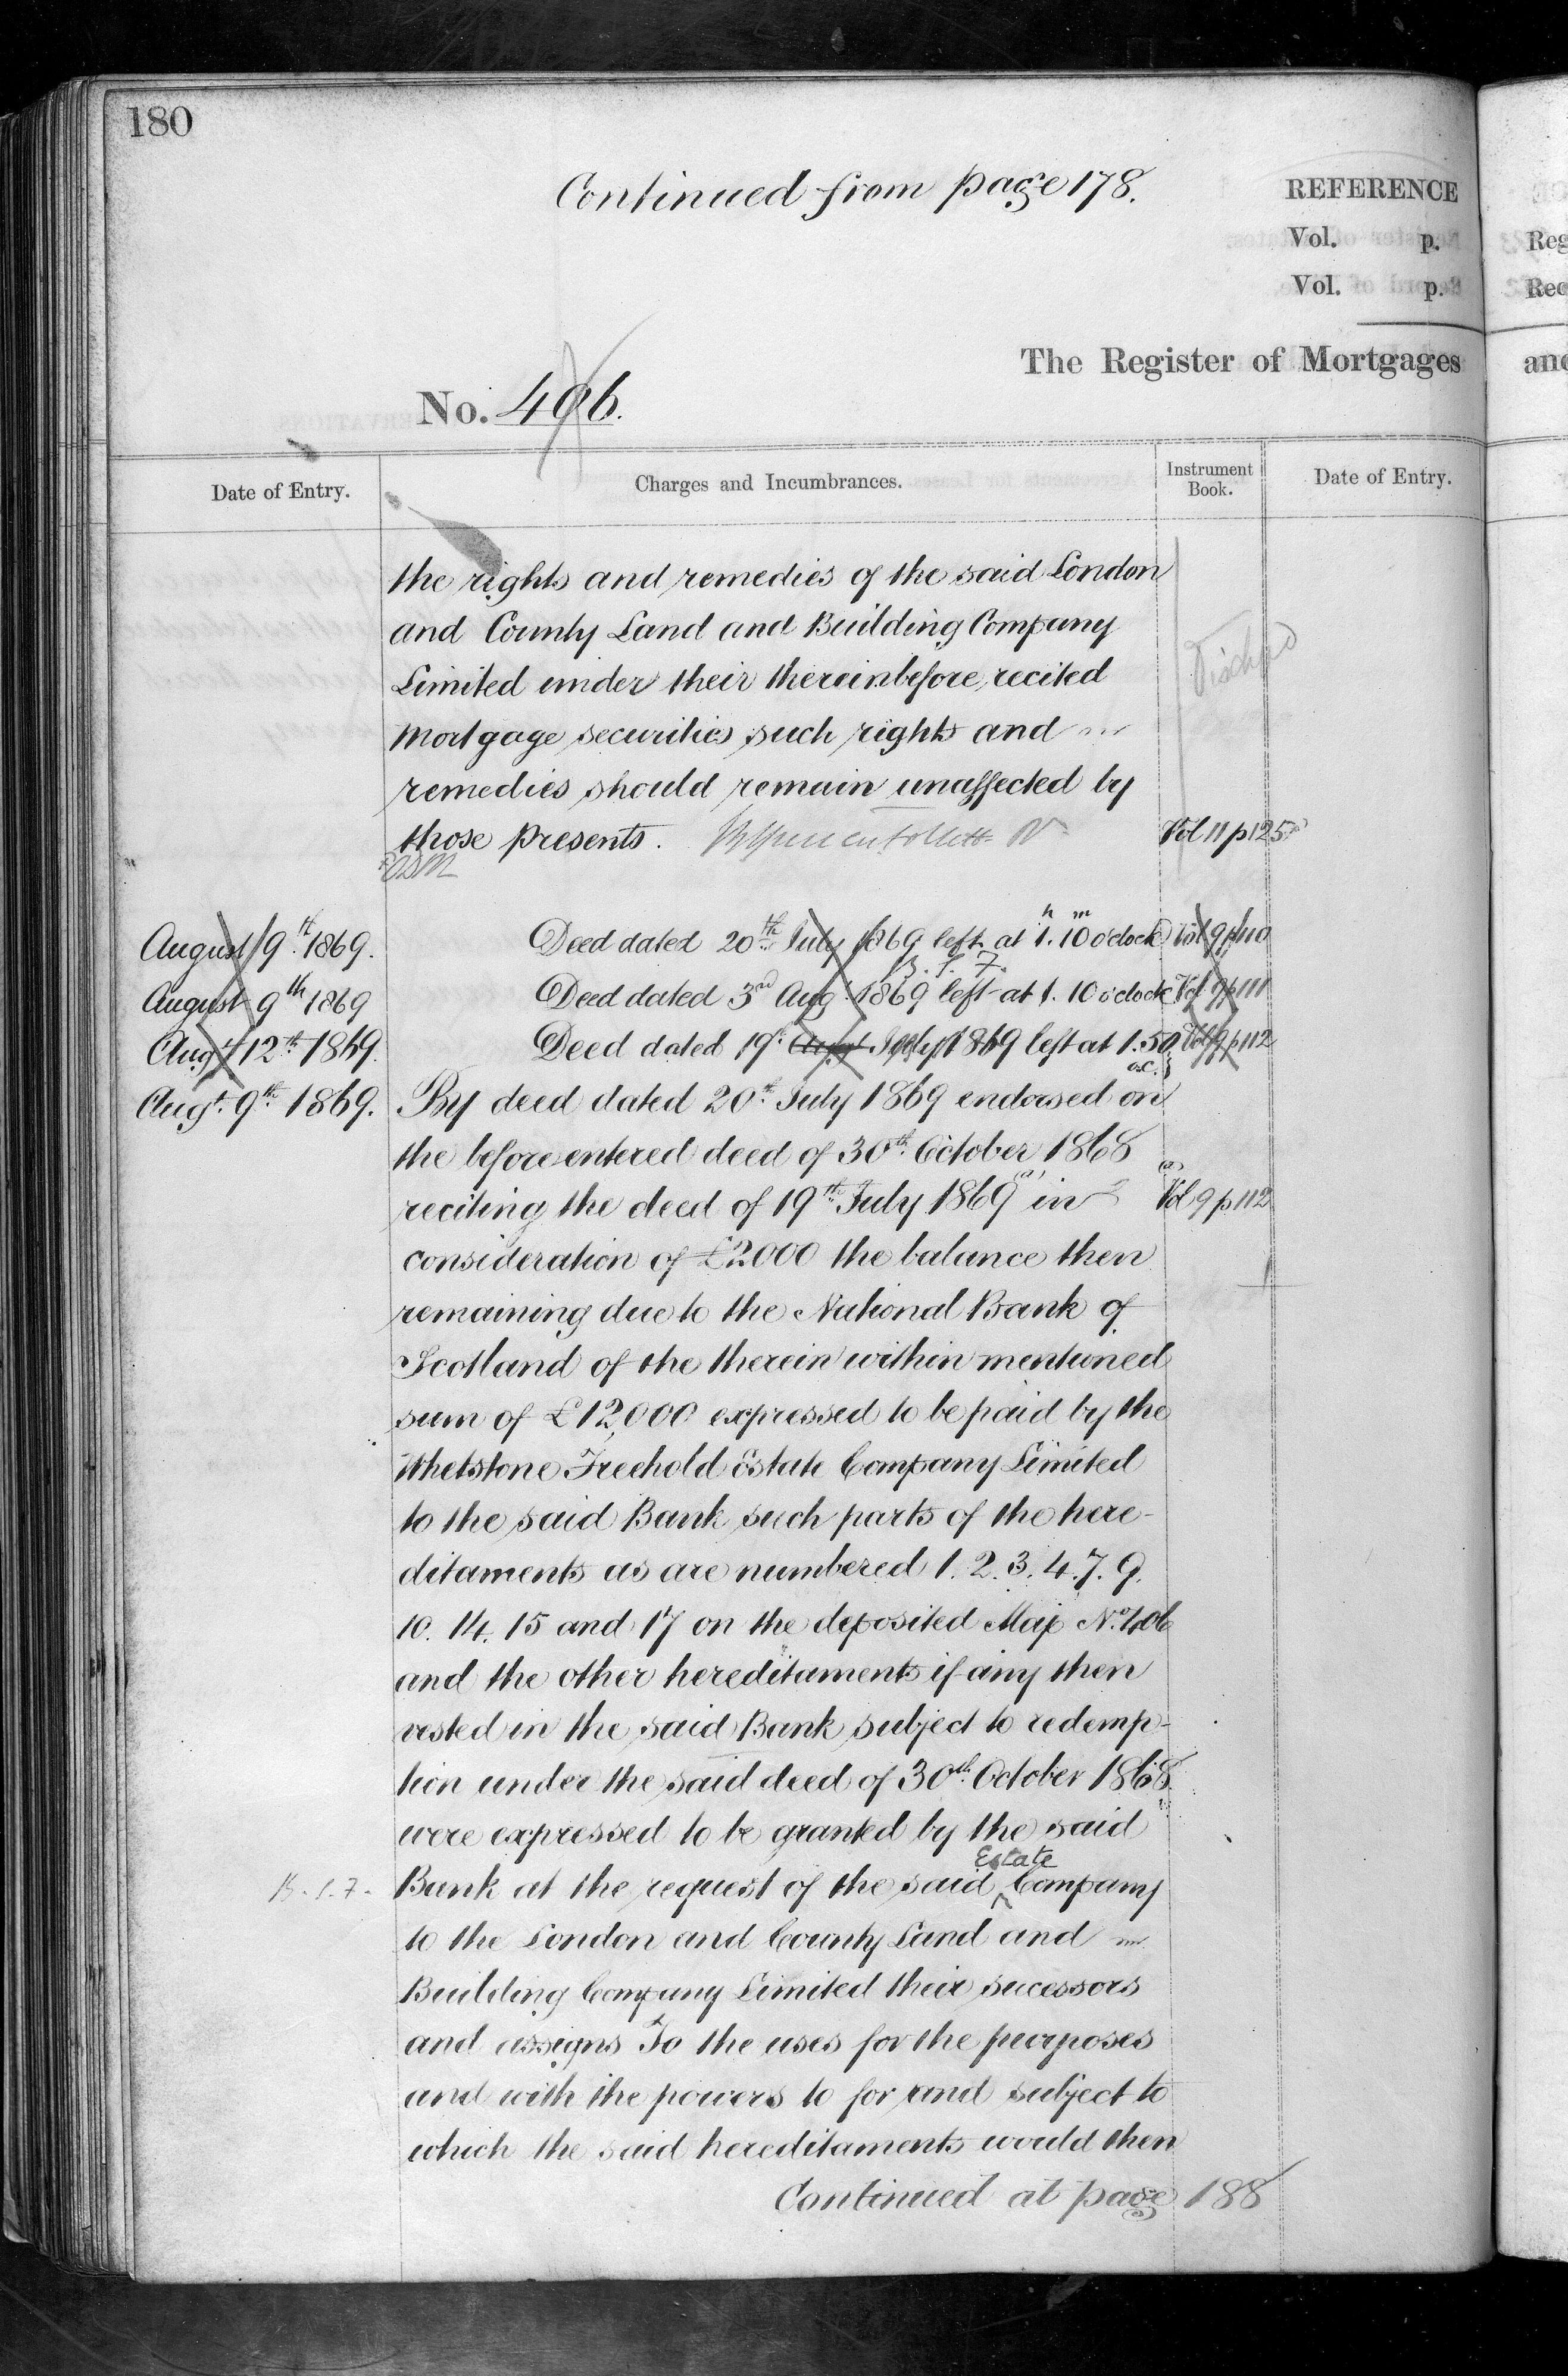 180
Continued from page 178.
REFERENCE
Vol. p.
Vol. p.
The Register of Mortgages
No. 406.
Date of Entry.
Charges and Incumbrances.
Instrument Book.
Date of Entry.
the rights and remedies of the said London
and County Land and Building Company
Limited under their thereinbefore recited
mortgage securities such rights and
remedies should remain unaffected by
those presents.
Vol 11 p 125
August 9th 1869. Deed dated 20th July 1869 left at 1h. 10m o'clock Vol 9 p 110
B. S. F.
August 9th 1869 Deed dated 3rd Aug 1869 left at 1. 10 o'clock Vol 9 p 111
Augt 12th 1869. Deed dated 19th Augt July 1869 left at 1.50 Vol 9 p 112
o.c.
Augt. 9th 1869. By deed dated 20th July 1869 endorsed on
the before entered deed of 30th October 1868
reciting the deed of 19th July 1869 (a) in (a) Vol 9 p 112
consideration of £2000 the balance then
remaining due to the National Bank of
Scotland of the therein within mentioned
sum of £12,000 expressed to be paid by the
Whetstone Freehold Estate Company Limited
to the said Bank such parts of the here-
ditaments as are numbered 1. 2. 3. 4. 7. 9.
10. 14. 15 and 17 on the deposited Map No. 406
and the other hereditaments if any then
vested in the said Bank subject to redemp-
tion under the said deed of 30th October 1868
were expressed to be granted by the said
Estate
B. S. F. Bank at the request of the said ^ Company
to the London and County Land and
Building Company Limited their sucessors
and assigns To the uses for the purposes
and with the powers to for and subject to
which the said hereditaments would then
Continued at page 188
Reg
Rec
and